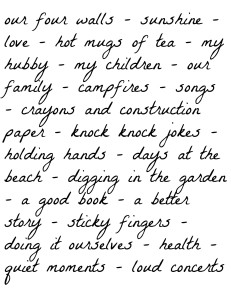 our four walls - sunshine -
love - hot mugs of tea - my
hubby - my children - our
family - campfires - songs
- crayons and construction
paper - knock knock jokes -
holding hands - days at the
beach - digging in the garden
- a good book - a better
story - sticky fingers -
doing it ourselves - health -
quiet moments - loud concerts